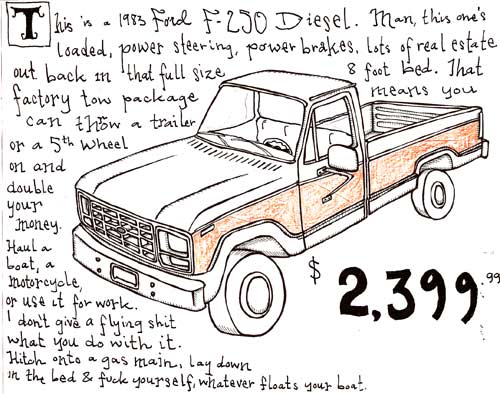 This is a 1983 Ford F-250 Diesel. Man, this one's
loaded, power steering, power brakes, lots of real estate
out back in that full size 8 foot bed. That
factory tow package means you
can throw a trailer
or a 5th wheel
on and
double
your
money.
Haul a
boat, a
motorcycle,
or use it for work.
I don't give a flying shit
what you do with it.
Hitch onto a gas main, lay down
in the bed & fuck yourself, whatever floats your boat.
$2,399.99